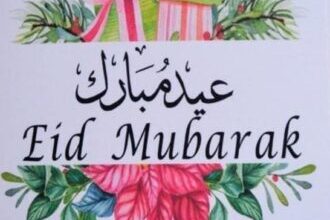 عيد مُبَارك
Eid Mubarak